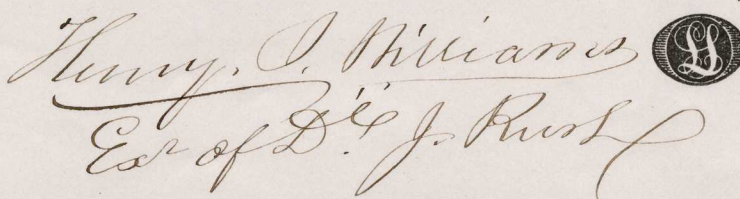 Henry. J. Williams
Exr of Dr. J. Rush